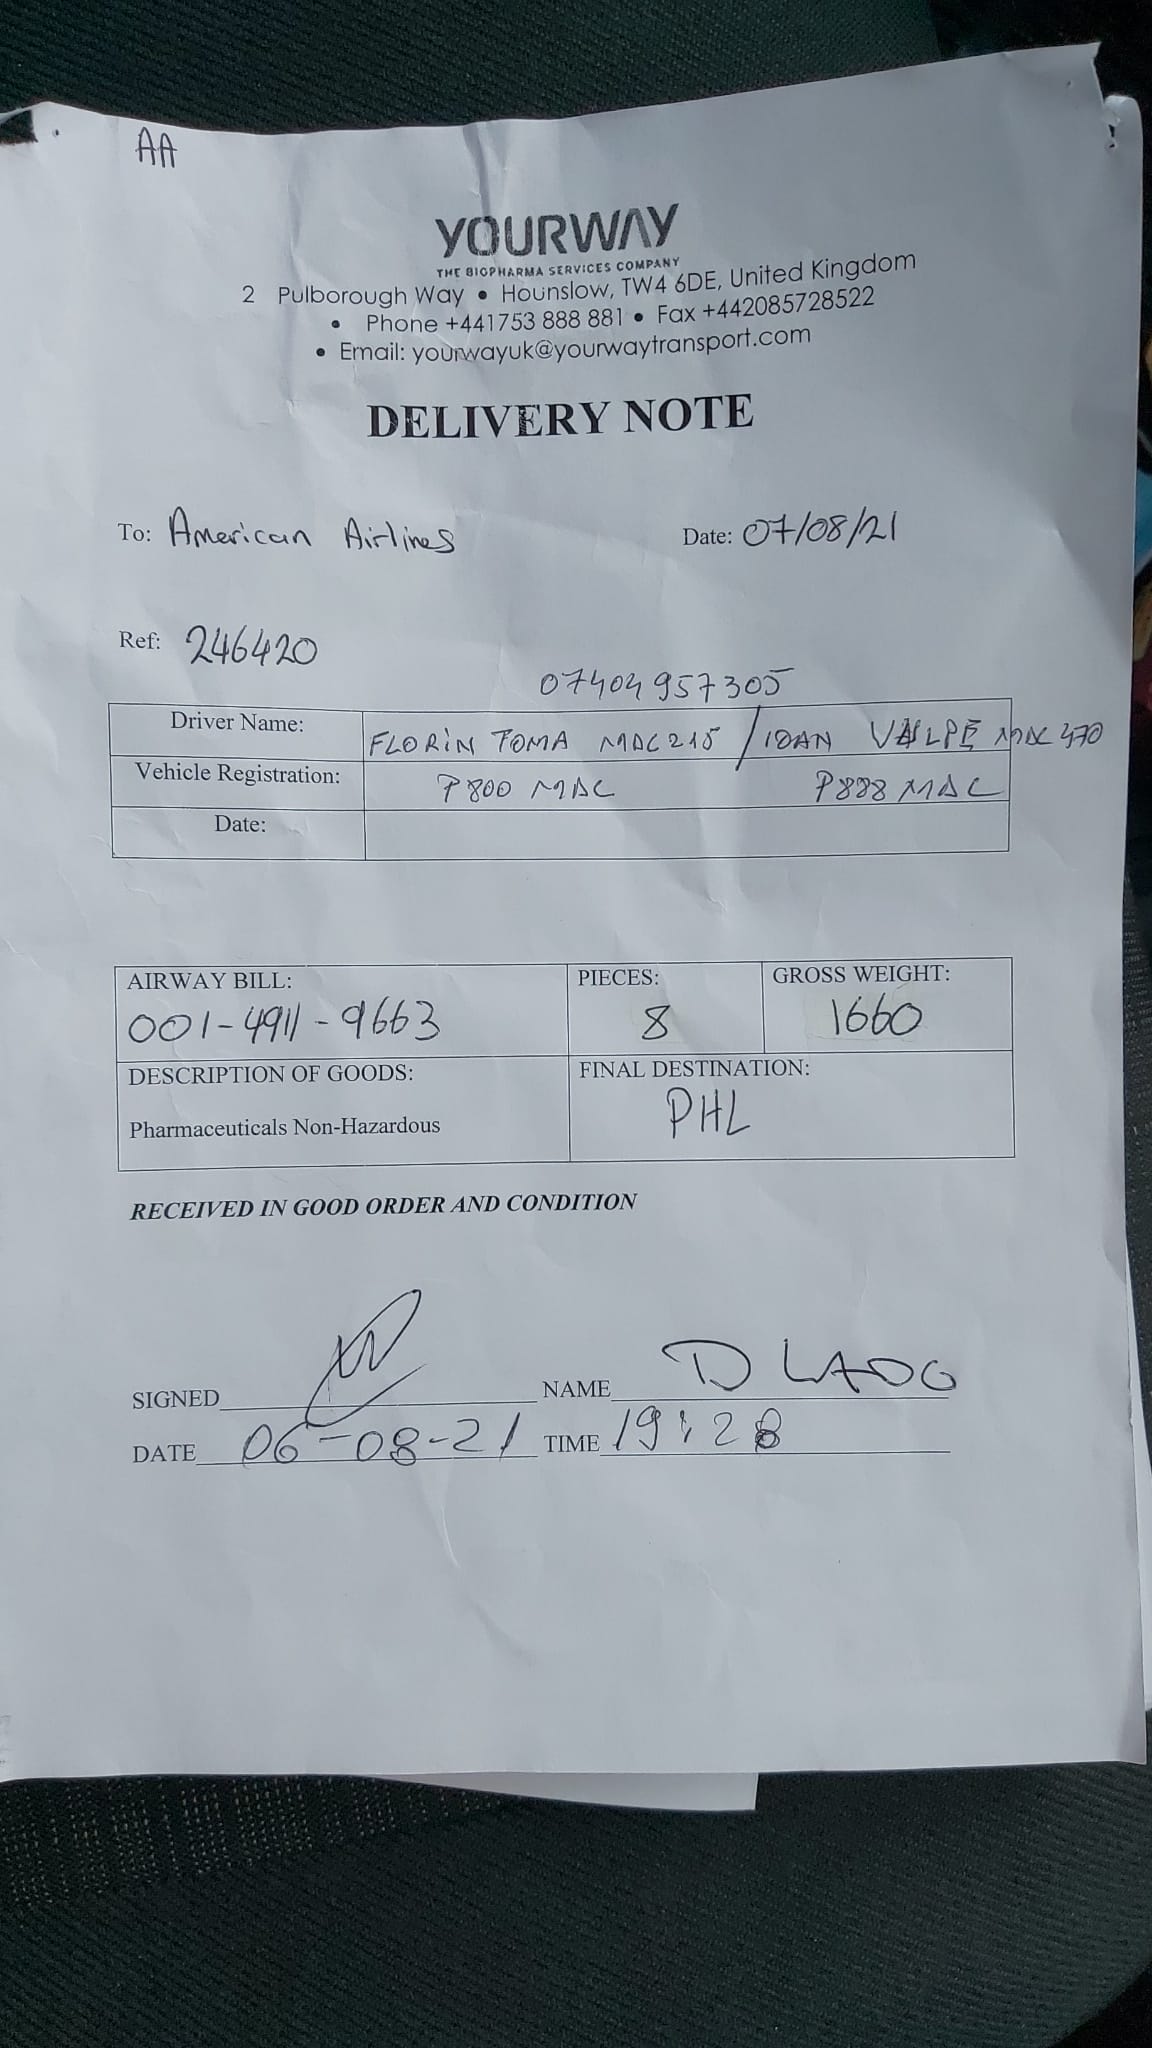 AA
YOURWAY
THE BIOPHARMA SERVICES COMPANY
2 Pulborough Way • Hounslow, TW4 6DE, United Kingdom
• Phone +441753 888 881 • Fax +442085728522
• Email: yourwayuk@yourwaytransport.com
DELIVERY NOTE
To: American Airlines Date: 07/08/21
Ref: 246420
07404957305
Driver Name: FLORIN TOMA MAC215 / IOAN VULPE MAC 370
Vehicle Registration: P800 MAC P888 MAC
Date:
AIRWAY BILL: PIECES: GROSS WEIGHT:
001-4911-9663 8 1660
DESCRIPTION OF GOODS: FINAL DESTINATION:
Pharmaceuticals Non-Hazardous PHL
RECEIVED IN GOOD ORDER AND CONDITION
SIGNED NAME D LADO
DATE 06-08-21 TIME 19:28